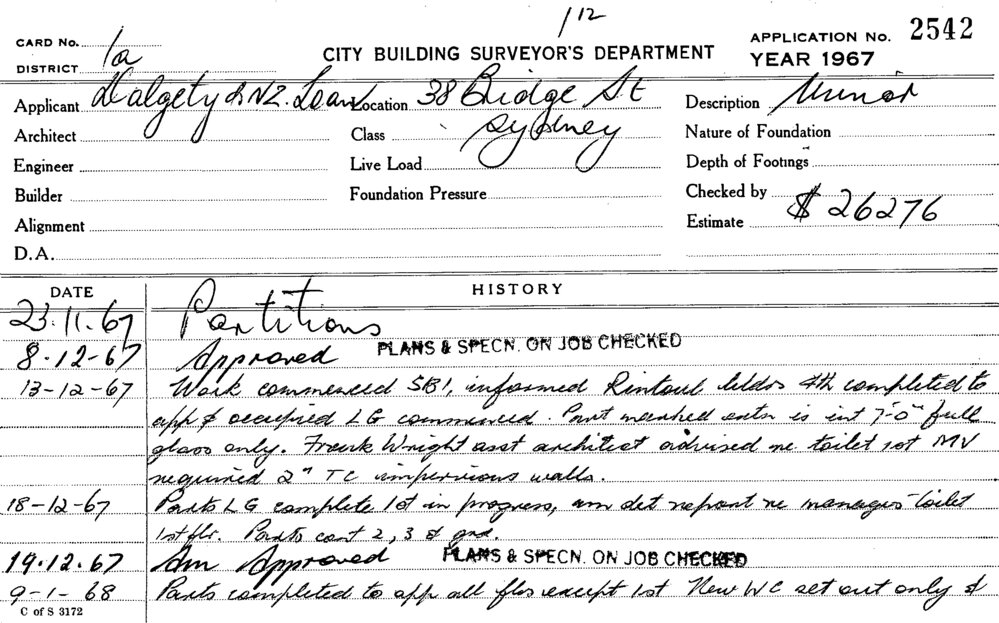 1/12
CARD No. 1a
DISTRICT
CITY BUILDING SURVEYOR'S DEPARTMENT
APPLICATION No. 2542
YEAR 1967
Applicant Dalgety & NZ. Loan Location 38 Bridge St Description Minor
Architect Class Sydney Nature of Foundation
Engineer Live Load Depth of Footings
Builder Foundation Pressure Checked by
Alignment Estimate $26276
D.A.
DATE HISTORY
23.11.67 Partitions
8-12-67 Approved PLANS & SPECN. ON JOB CHECKED
13-12-67 Work commenced SB1, informed Rintoul bldrs 4th completed to
app & occupied LG commenced. Part marked extn is int 7'-0" full
glass only. Frank Wright asst architect advised re toilet 1st MV
required 2" TC impervious walls.
18-12-67 Parts LG complete 1st in progress, am det report re managers toilet
1st flr. Parts cont 2, 3 & gnd.
19.12.67 Am Approved PLANS & SPECN. ON JOB CHECKED
9-1-68 Parts completed to app all flrs except 1st New WC set out only &
C of S 3172